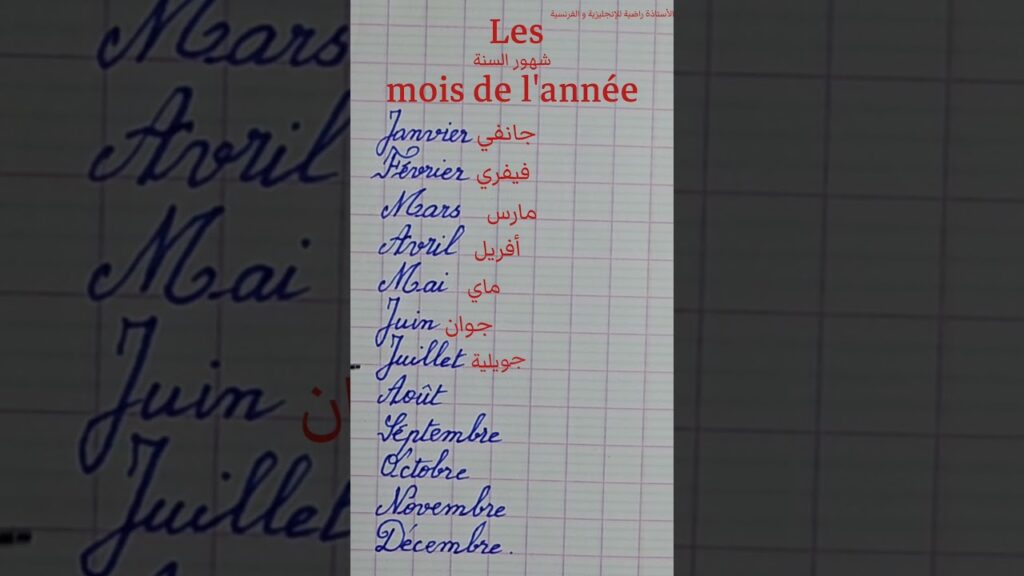 الأستاذة راضية للإنجليزية و الفرنسية
Les
شهور السنة
mois de l'année
Janvier جانفي
Février فيفري
Mars مارس
Avril أفريل
Mai ماي
Juin جوان
Juillet جويلية
Août
Septembre
Octobre
Novembre
Décembre.
Mars
Avril
Mai
Juin ان
Juillet